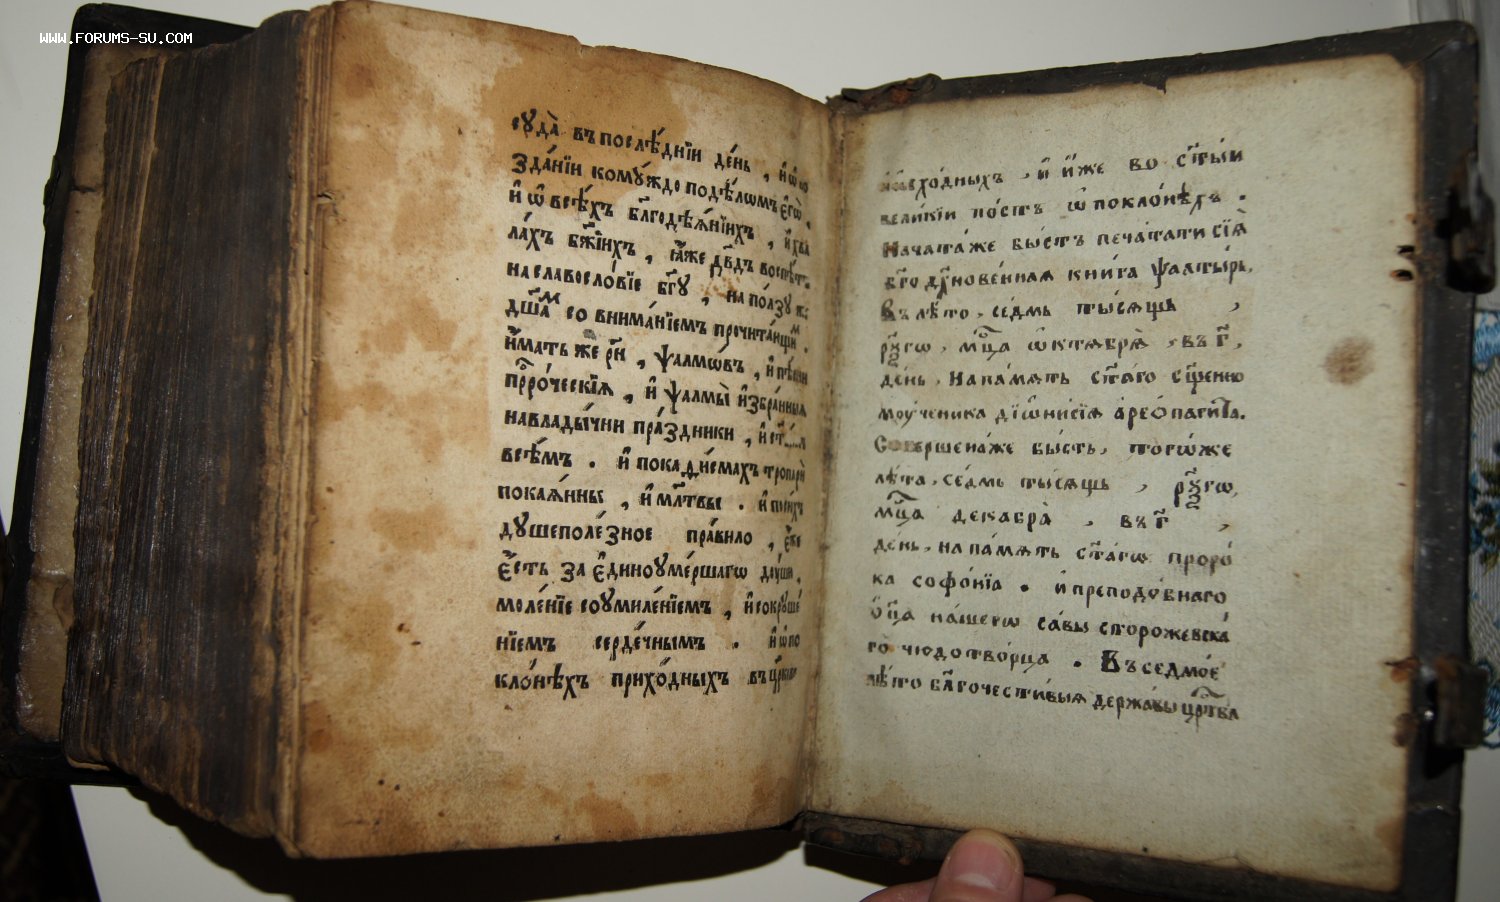 WWW.FORUMS-SU.COM
суда̀ въ послѣ́днїи де́нь, и҆ ѡ҆
зда́нїи кому́ждо по дѣ́лѡмъ є҆гѡ̀,
и҆ ѡ҆ всѣ́хъ бл҃годѣѧ́нїихъ, и҆ хва
ла́хъ бж҃їихъ, ꙗ҆́же дв҃дъ воспѣ́тъ.
на славосло́вїе бг҃ꙋ, на по́льзꙋ же
дш҃а́мъ со внима́нїемъ прочита́ющи.
и҆́мать же рн҃, ѱалмѡ́въ, и҆ пѣ́сни
прⷪ҇ро́ческїѧ, и҆ ѱалмы̀ и҆збра́нныѧ
на влады́чни пра́здники, и҆ ст҃ы́мъ
всѣ́мъ. и҆ по каді́смахъ тропарѝ
покаѧ́нны, и҆ мл҃твы. и҆ по си́хъ
дꙋшеполе́зное пра́вило, є҆́же
є҆́сть за є҆диноꙋме́ршаго дꙋши,
моле́нїе со ꙋмиле́нїемъ, и҆ сокрꙋше́
нїемъ серде́чнымъ. и҆ ѡ҆ по
кло́нѣхъ прихо́дныхъ въ цр҃ковь
и҆ и҆схо́дныхъ, и҆ и҆́же во ст҃ы́и
вели́кїи по́стъ ѡ҆ покло́нѣхъ.
Начата́ же бы́сть печа́тати сїѧ̀
бг҃одꙋхнове́ннаѧ кни́га ѱалты́рь,
въ лѣ́то, се́дмь ты́сѧщь,
рѯ҃гѡ, мц҃а ѡ҆ктѧбрѧ̀, въ г҃,
де́нь. на па́мѧть ст҃а́го сщ҃е́нно
мꙋ́ченика дїѡни́сїѧ а҆реопаги́та.
Соверше́на же бы́сть, тогѡ́же
лѣ́та, се́дмь ты́сѧщь, рѯ҃гѡ,
мц҃а декабрѧ̀, въ г҃,
де́нь, на па́мѧть ст҃а́гѡ проро́
ка софо́нїа. и҆ преподо́бнаго
ѻ҆ц҃а на́шегѡ са́вы сторожевска́
го чюдотво́рца. Въ седмо́е
лѣ́то бл҃гочести́выѧ держа́вы црⷭ҇тва